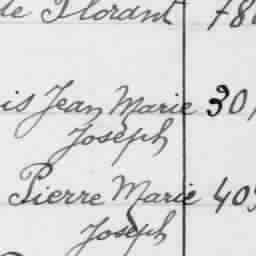 de Florant 78
is Jean Marie 30
Joseph
Pierre Marie 409
Joseph